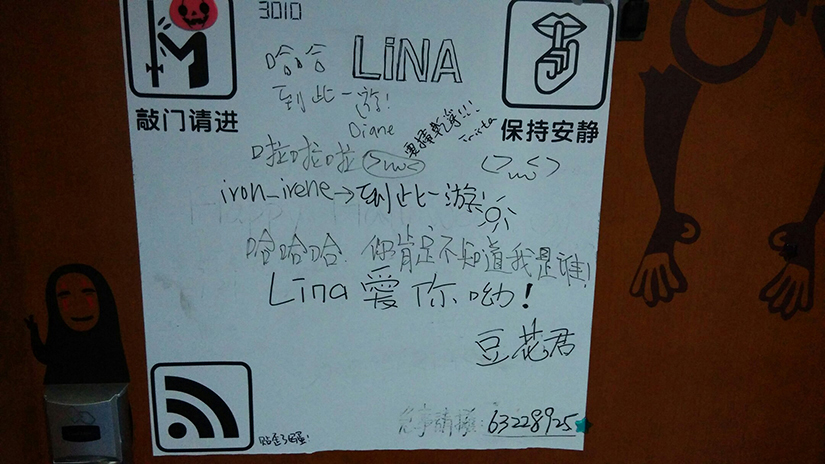 3010
哈哈 LiNA
到此一游!
Diane
Trista
敲门请进
保持安静
啦啦啦啦
iron_irene→到此一游
哈哈哈 你肯定不知道我是谁!
Lina愛你呦!
豆花君
有事請撥:63228925